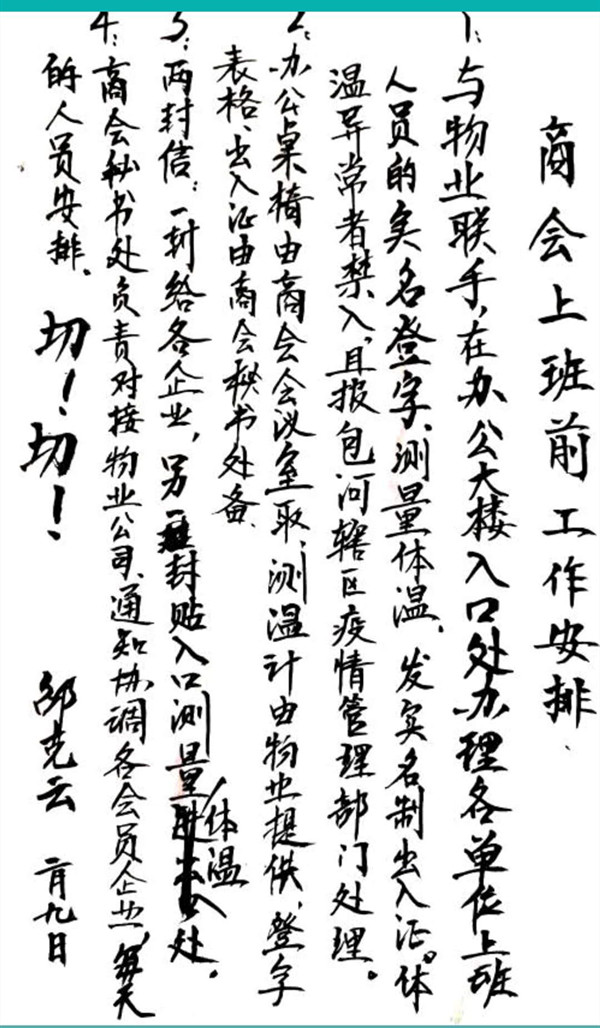 商会上班前工作安排
1:与物业联手,在办公大楼入口处办理各单位上班
人员的实名登字、测量体温、发实名制出入证。体
温异常者禁入,且报包河辖区疫情管理部门处理。
2:办公桌椅由商会会议室取、测温计由物业提供、登字
表格、出入证由商会秘书处备、
3:两封信:一封给各企业,另一封贴入口测量体温处。
4:商会秘书处负责对接物业公司、通知协调各会员企业,每天
的人员安排、
切!切!
邵克云 二月九日